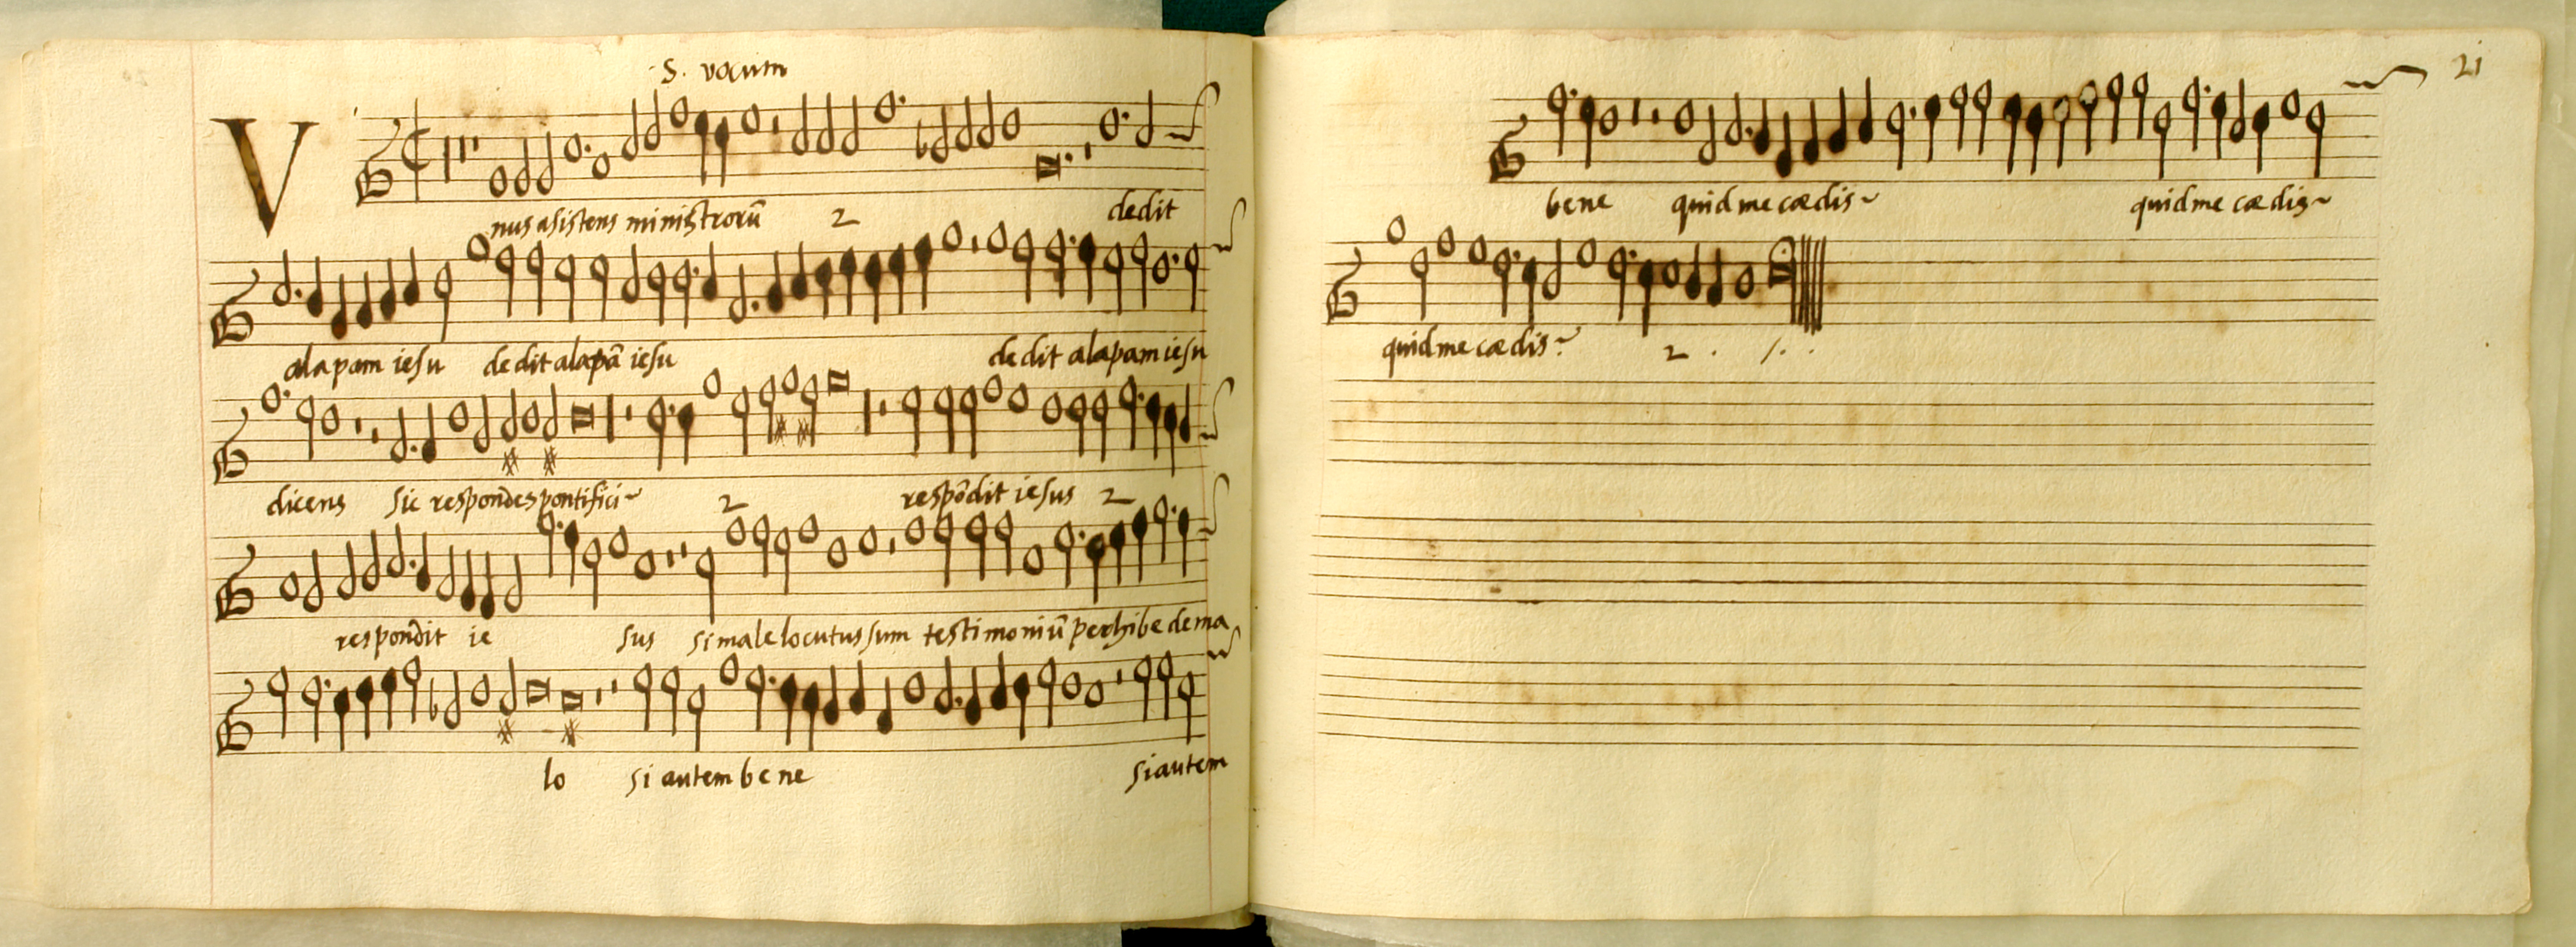 S. vocum
V
nus asistens ministrorū 2 dedit
alapam iesu dedit alapā iesu dedit alapam iesu
dicens Sic respondes pontifici 2 respōdit iesus 2
respondit ie sus si male locutus sum testimoniū perhibe de ma
lo si autem bene si autem
21
bene quid me cædis quid me cædis
quid me cædis? 2